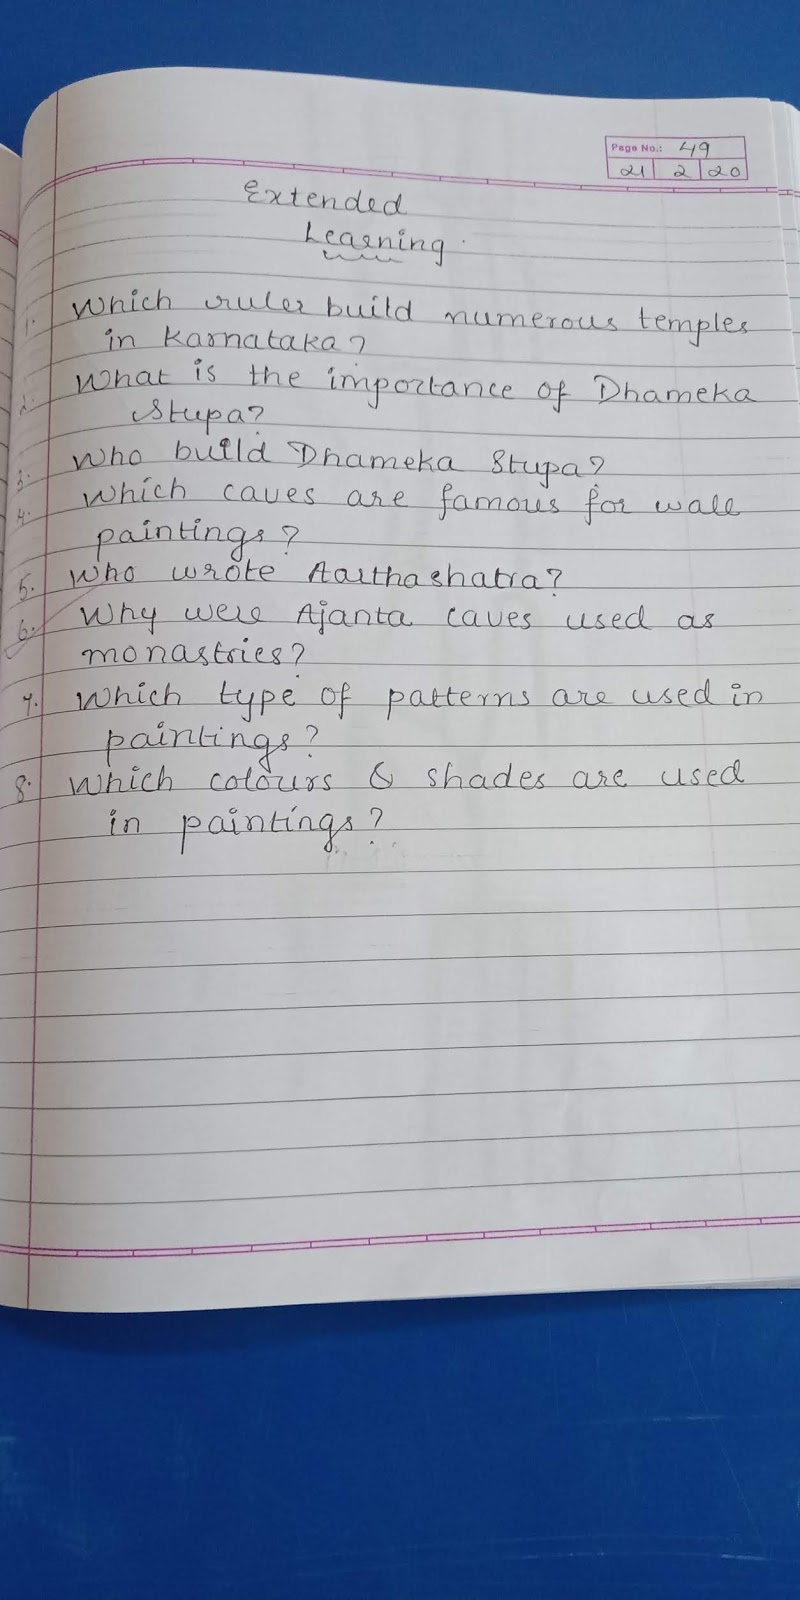 Page No.: 49
21 2 20
Extended
Learning.
1. Which ruler build numerous temples
in Karnataka?
2. What is the importance of Dhameka
Stupa?
3. Who build Dhameka Stupa?
4. Which caves are famous for wall
paintings?
5. Who wrote Aarthashatra?
6. Why were Ajanta caves used as
monastries?
7. Which type of patterns are used in
paintings?
8. Which colours & shades are used
in paintings?